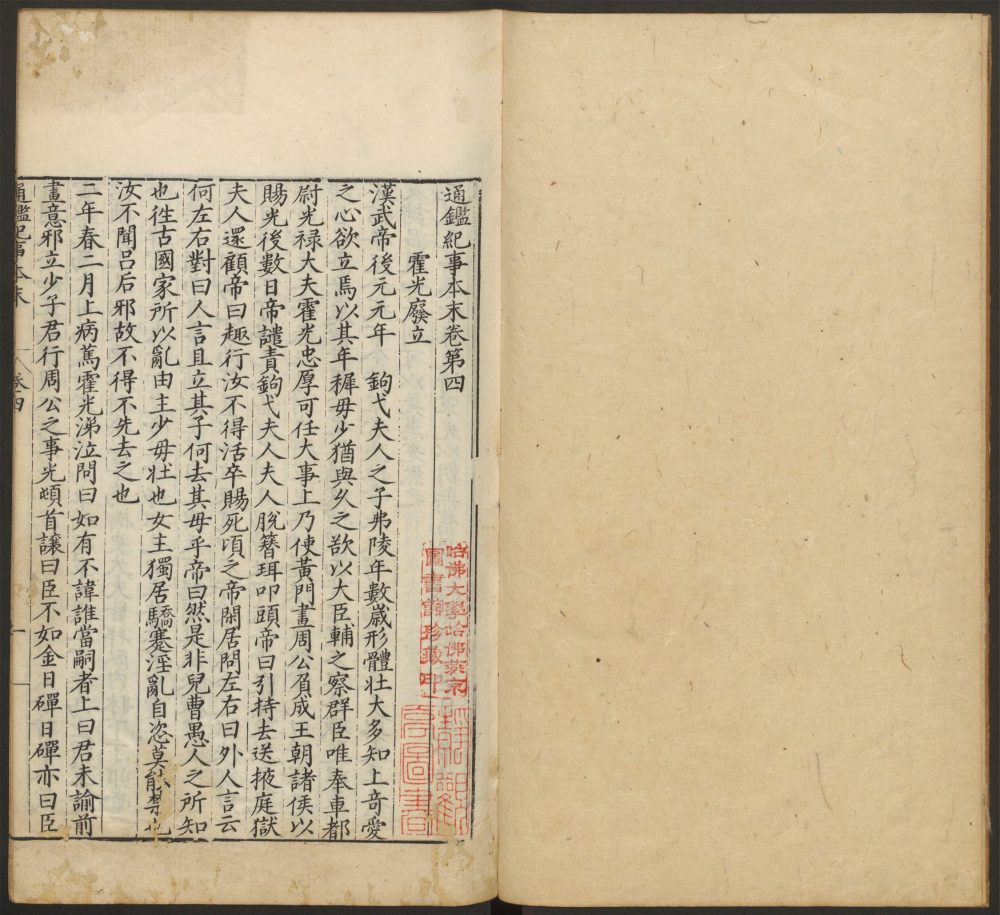 通鑑紀事本末卷第四
霍光廢立
漢武帝後元元年 鉤弋夫人之子弗陵年數歲形體壯大多知上奇愛
之心欲立焉以其年穉母少猶與久之欲以大臣輔之察群臣唯奉車都
尉光禄大夫霍光忠厚可任大事上乃使黃門畫周公負成王朝諸侯以
賜光後數日帝譴責鉤弋夫人夫人脫簪珥叩頭帝曰引持去送掖庭獄
夫人還顧帝曰趣行汝不得活卒賜死頃之帝閑居問左右曰外人言云
何左右對曰人言且立其子何去其母乎帝曰然是非兒曹愚人之所知
也徃古國家所以亂由主少母壯也女主獨居驕蹇淫亂自恣莫能禁也
汝不聞吕后邪故不得不先去之也
二年春二月上病篤霍光涕泣問曰如有不諱誰當嗣者上曰君未諭前
畫意邪立少子君行周公之事光頓首讓曰臣不如金日磾日磾亦曰臣
通鑑紀事本末
卷四
一
哈佛大學哈佛燕京
圖書館珍藏印